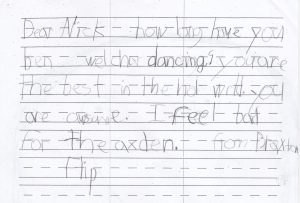 Dear Nick how long have you
ben welcher dancing? you are
the best in the hol world. you
are awsome. I feel bad
for the axden. from Braxton
flip